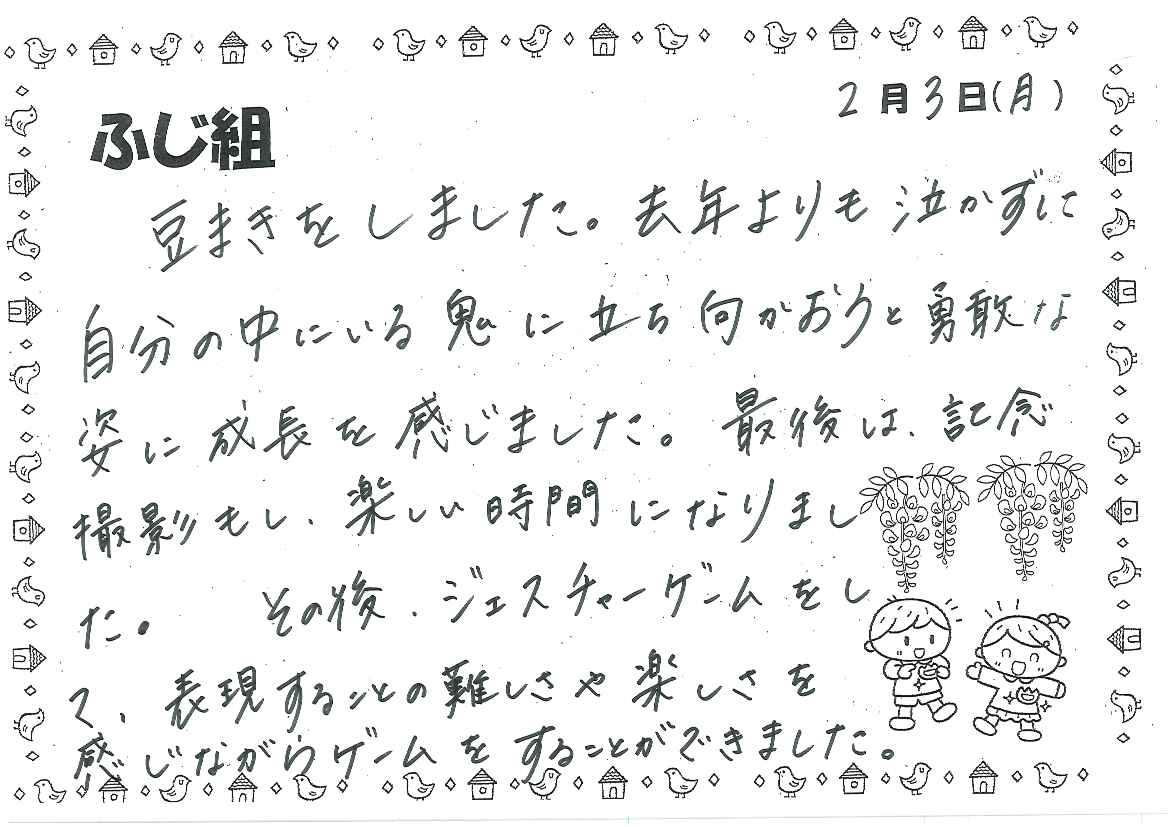 2月3日(月)
ふじ組
豆まきをしました。去年よりも泣かずに
自分の中にいる鬼に立ち向かおうと勇敢な
姿に成長を感じました。最後は、記念
撮影もし、楽しい時間になりまし
た。 その後、ジェスチャーゲームをし
て、表現することの難しさや楽しさを
感じながらゲームをすることができました。